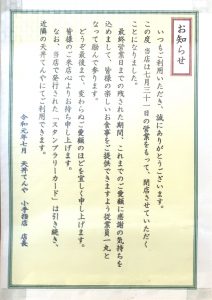 お知らせ
いつもご利用いただき、誠にありがとうございます。
この度、当店は七月三十一日の営業をもって、閉店させていただく
ことになりました。
最終営業日までの残された期間、これまでのご愛顧に感謝の気持ちを
込めまして、皆様の楽しいお食事をご提供できますよう従業員一丸と
なって励んで参ります。
どうぞ最後まで、変わらぬご愛顧のほどを宜しく申し上げます。
皆様のご来店心よりお待ち申し上げます。
なお、当店で発行された「スタンプラリーカード」は引き続き、
近隣の天丼てんやにてご利用できます。
令和元年七月 天丼てんや 小手指店 店長